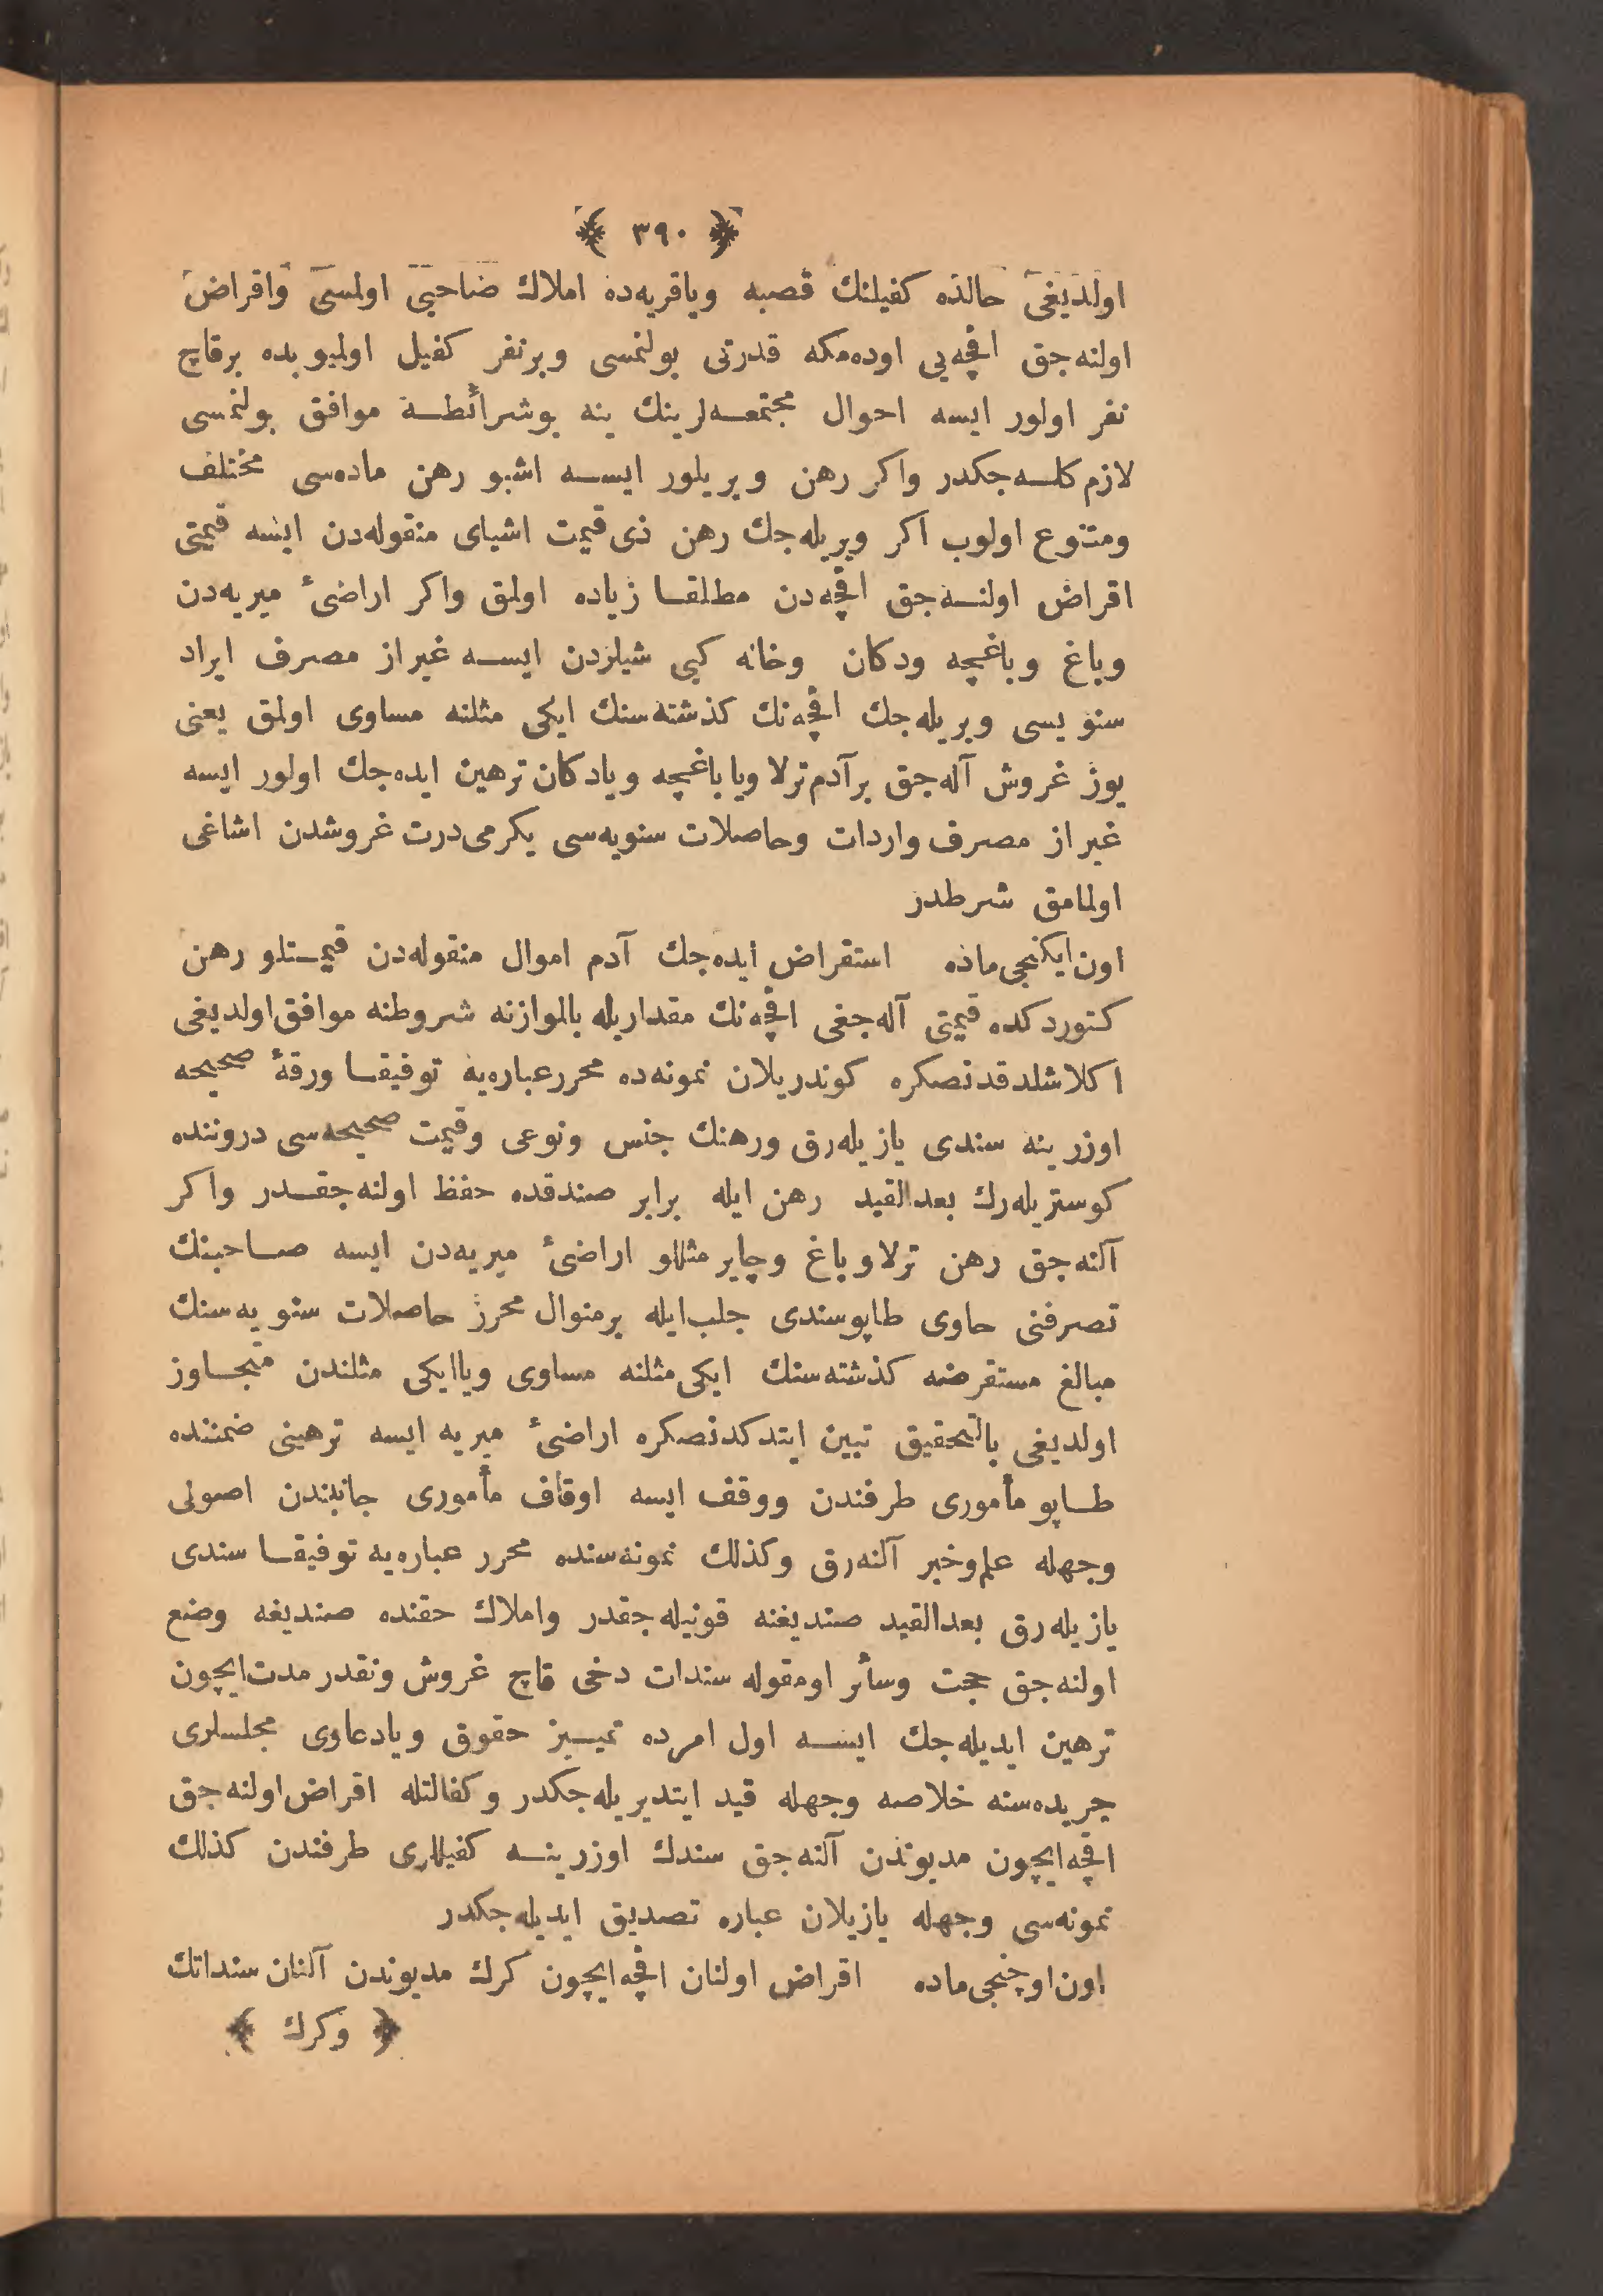 ﴿ ٣٩٠ ﴾
اولديغى حالده كفيلنك قصبه وياقريه‌ده املاك صاحبى اولمسى واقراض
اولنه‌جق اقچه‌يى اوده‌مكه قدرتى بولنمسى وبرنفر كفيل اولميوبده برقاچ
نفر اولور ايسه احوال مجتمعه‌لرينك ينه بوشرائطه موافق بولنمسى
لازم كله‌جكدر واكر رهن ويريلور ايسه اشبو رهن ماده‌سى مختلف
ومتنوع اولوب اكر ويريله‌جك رهن ذى قيمت اشياى منقوله‌دن ايسه قيمتى
اقراض اولنه‌جق اقچه‌دن مطلقا زياده اولمق واكر اراضئ ميريه‌دن
وباغ وباغچه ودكان وخانه كبى شيلردن ايسه غير از مصرف ايراد
سنويسى ويريله‌جك اقچه‌نك كذشته‌سنك ايكى مثلنه مساوى اولمق يعنى
يوز غروش آله‌جق برآدم ترلا ويا باغچه ويادكان ترهين ايده‌جك اولور ايسه
غير از مصرف واردات وحاصلات سنويه‌سى يكرمى درت غروشدن اشاغى
اولمامق شرطدر
اون ايكنجى ماده استقراض ايده‌جك آدم اموال منقوله‌دن قيمتلو رهن
كتوردكده قيمتى آله‌جغى اقچه‌نك مقداريله بالموازنه شروطنه موافق اولديغى
اكلاشلدقدنصكره كوندريلان نمونه‌ده محرر عباره‌يه توفيقا ورقۀ صحيحه
اوزرينه سندى يازيله‌رق ورهنك جنس ونوعى وقيمت صحيحه‌سى دروننده
كوستريله‌رك بعدالقيد رهن ايله برابر صندقده حفظ اولنه‌جقدر واكر
آلنه‌جق رهن ترلا وباغ وچاير مثللو اراضئ ميريه‌دن ايسه صاحبنك
تصرفنى حاوى طاپوسندى جلب ايله برمنوال محرر حاصلات سنويه‌سنك
مبالغ مستقرضه كذشته‌سنك ايكى مثلنه مساوى ويا ايكى مثلندن متجاوز
اولديغى بالتحقيق تبين ايتدكدنصكره اراضئ ميريه ايسه ترهينى ضمننده
طاپو مأمورى طرفندن ووقف ايسه اوقاف مأمورى جانبندن اصولى
وجهله علم‌وخبر آلنه‌رق وكذلك نمونه‌سنده محرر عباره‌يه توفيقا سندى
يازيله‌رق بعدالقيد صنديغنه قونيله‌جقدر واملاك حقنده صنديغه وضع
اولنه‌جق حجت وسائر اومقوله سندات دخى قاچ غروش ونقدر مدت ايچون
ترهين ايديله‌جك ايسه اول امرده تمييز حقوق ويادعاوى مجلسلرى
جريده‌سنه خلاصه وجهله قيد ايتديريله‌جكدر وكفالتله اقراض اولنه‌جق
اقچه ايچون مديوندن آلنه‌جق سندك اوزرينه كفيللرى طرفندن كذلك
نمونه‌سى وجهله يازيلان عباره تصديق ايديله‌جكدر
اون اوچنجى ماده اقراض اولنان اقچه ايچون كرك مديوندن آلنان سنداتك
﴿ وكرك ﴾